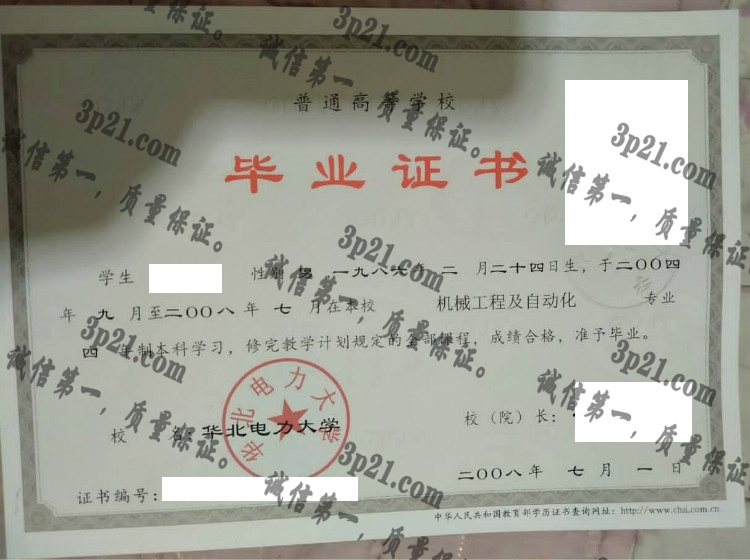 普通高等学校
毕业证书
学生 性别 男 一九八六年 二 月二十四日生，于二〇〇四
年 九 月至二〇〇八 年 七 月在本校 机械工程及自动化 专业
四 年制本科学习，修完教学计划规定的全部课程，成绩合格，准予毕业。
华北电力大学
校 名：华北电力大学
校（院）长：
二〇〇八年 七 月 一 日
证书编号：
中华人民共和国教育部学历证书查询网址：http://www.chsi.com.cn
3p21.com
诚信第一，质量保证。
3p21.com
诚信第一，质量保证。
3p21.com
诚信第一，质量保证。
3p21.com
诚信第一，质量保证。
3p21.com
诚信第一，质量保证。
3p21.com
诚信第一，质量保证。
3p21.com
诚信第一，质量保证。
3p21.com
诚信第一，质量保证。